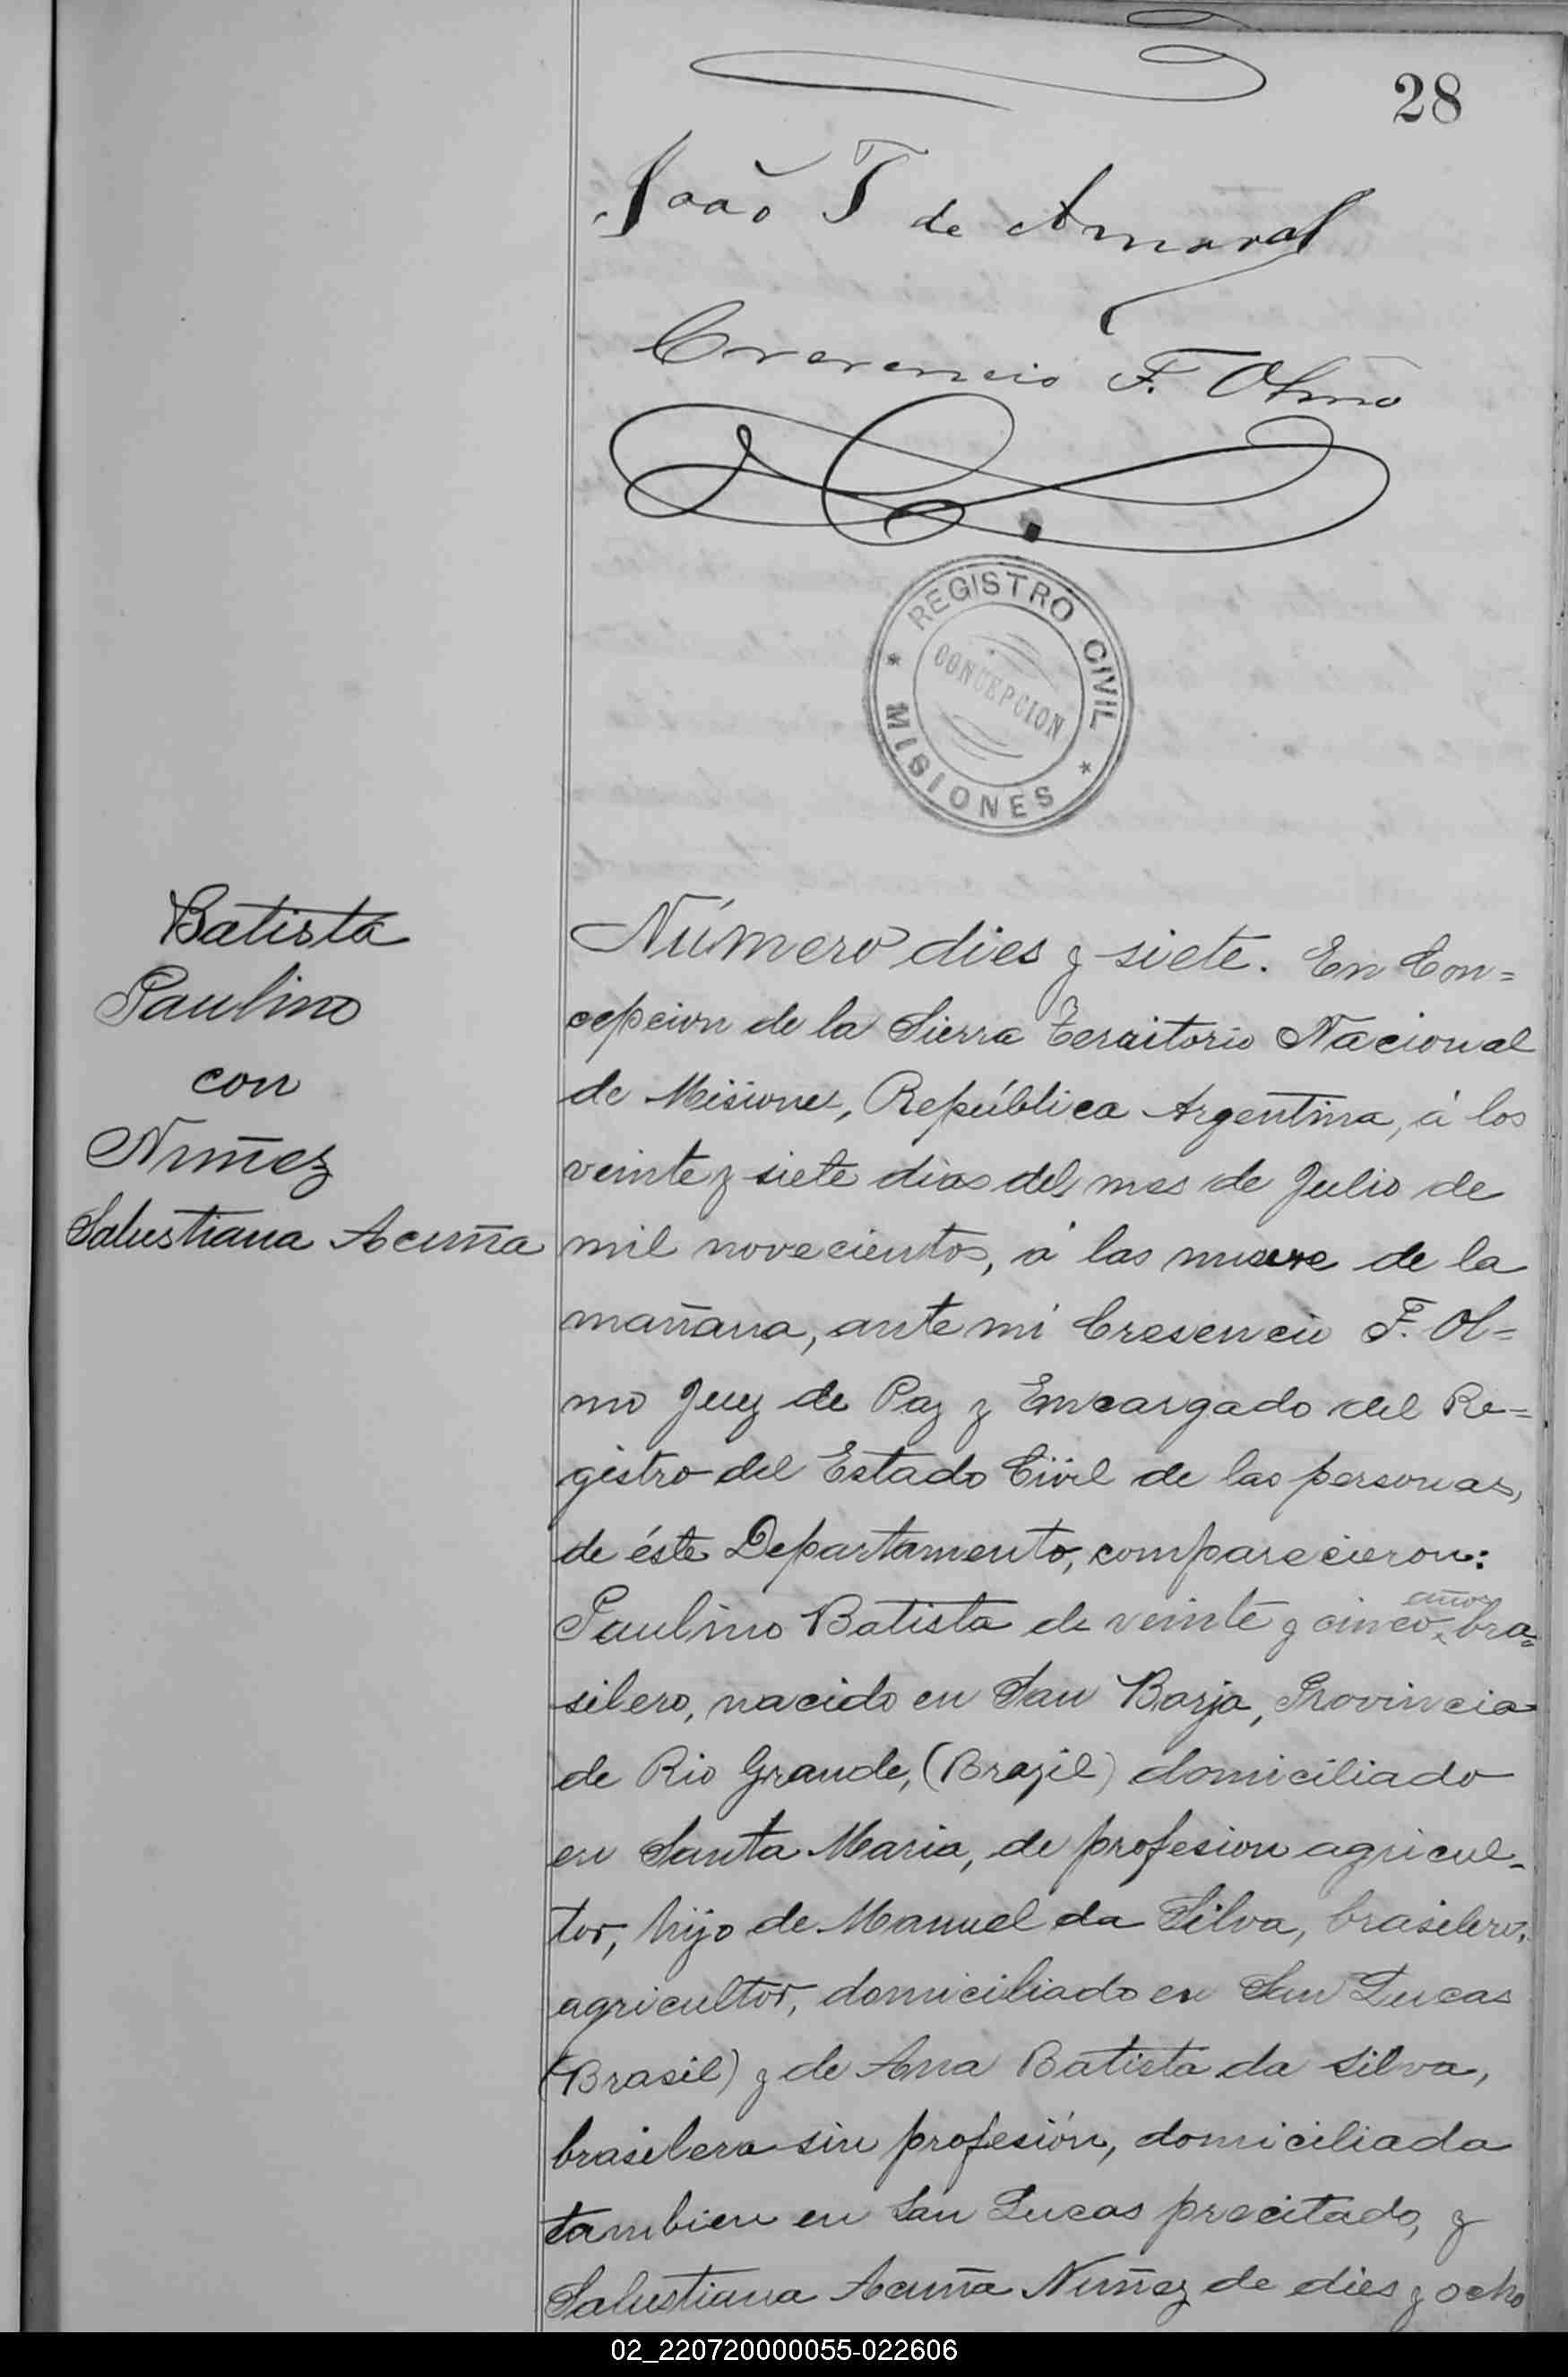 28
João T de Amaral
Cresencio F. Olmo
REGISTRO CIVIL
CONCEPCION
* MISIONES *
Batista
Paulino
con
Nuñez
Salustiana Acuña
Número dies y siete. En Con=
cepcion de la Sierra Territorio Nacional
de Misiones, República Argentina, á los
veinte y siete dias del mes de Julio de
mil novecientos, á las nueve de la
mañana, ante mi Cresencio F. Ol=
mo Juez de Paz y Encargado del Re=
gistro del Estado Civil de las personas,
de éste Departamento, comparecieron:
Paulino Batista de veinte y cinco años bra=
silero, nacido en San Borja, Provincia
de Rio Grande, (Brazil) domiciliado
en Santa Maria, de profesion agricul-
tor, hijo de Manuel da Silva, brasilero,
agricultor, domiciliado en San Lucas
(Brasil) y de Ana Batista da Silva,
brasilera sin profesión, domiciliada
tambien en San Lucas precitado, y
Salustiana Acuña Nuñez de dies y ocho
02_220720000055-022606